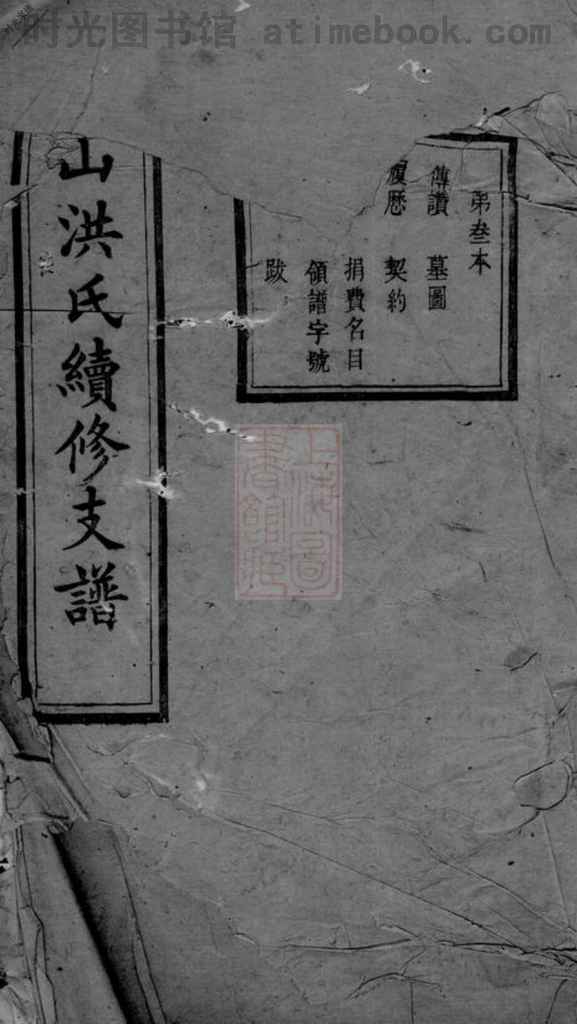 时光图书馆 atimebook.com
弟叁本
傳讚 墓圖
履歷 契約
捐費名目
領譜字號
跋
山洪氏續修支譜